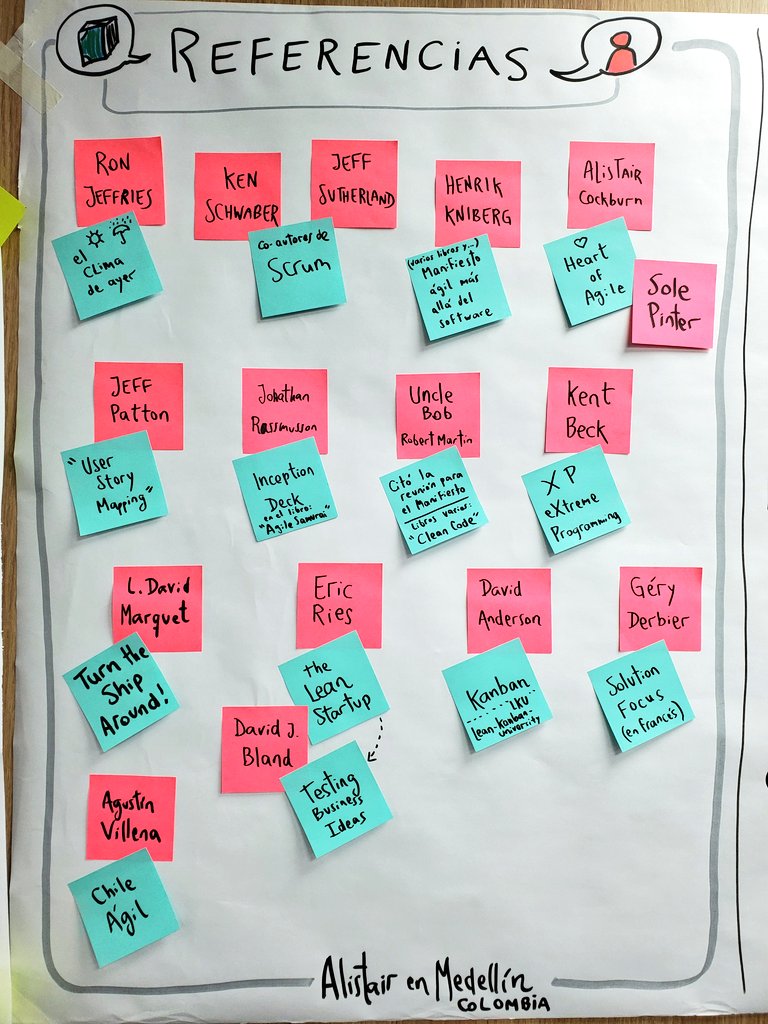 REFERENCIAS
RON
JEFFRIES
el
clima
de ayer
KEN
SCHWABER
JEFF
SUTHERLAND
co-autores de
Scrum
HENRIK
KNIBERG
(varios libros y...)
Manifiesto
ágil más
allá del
software
Alistair
Cockburn
Heart
of
Agile
Sole
Pinter
JEFF
Patton
"User
Story
Mapping"
Jonathan
Rassmusson
Inception
Deck
en el libro:
"Agile Samurai"
Uncle
Bob
Robert Martin
Citó la
reunión para
el Manifiesto
Libros varios:
"Clean Code"
Kent
Beck
XP
eXtreme
Programming
L. David
Marquet
Turn the
Ship
Around!
Eric
Ries
the
Lean
Startup
David J.
Bland
Testing
Business
Ideas
David
Anderson
Kanban
LKU
lean-kanban
university
Géry
Derbier
Solution
Focus
(en francés)
Agustín
Villena
Chile
Ágil
Alistair en Medellín
COLOMBIA